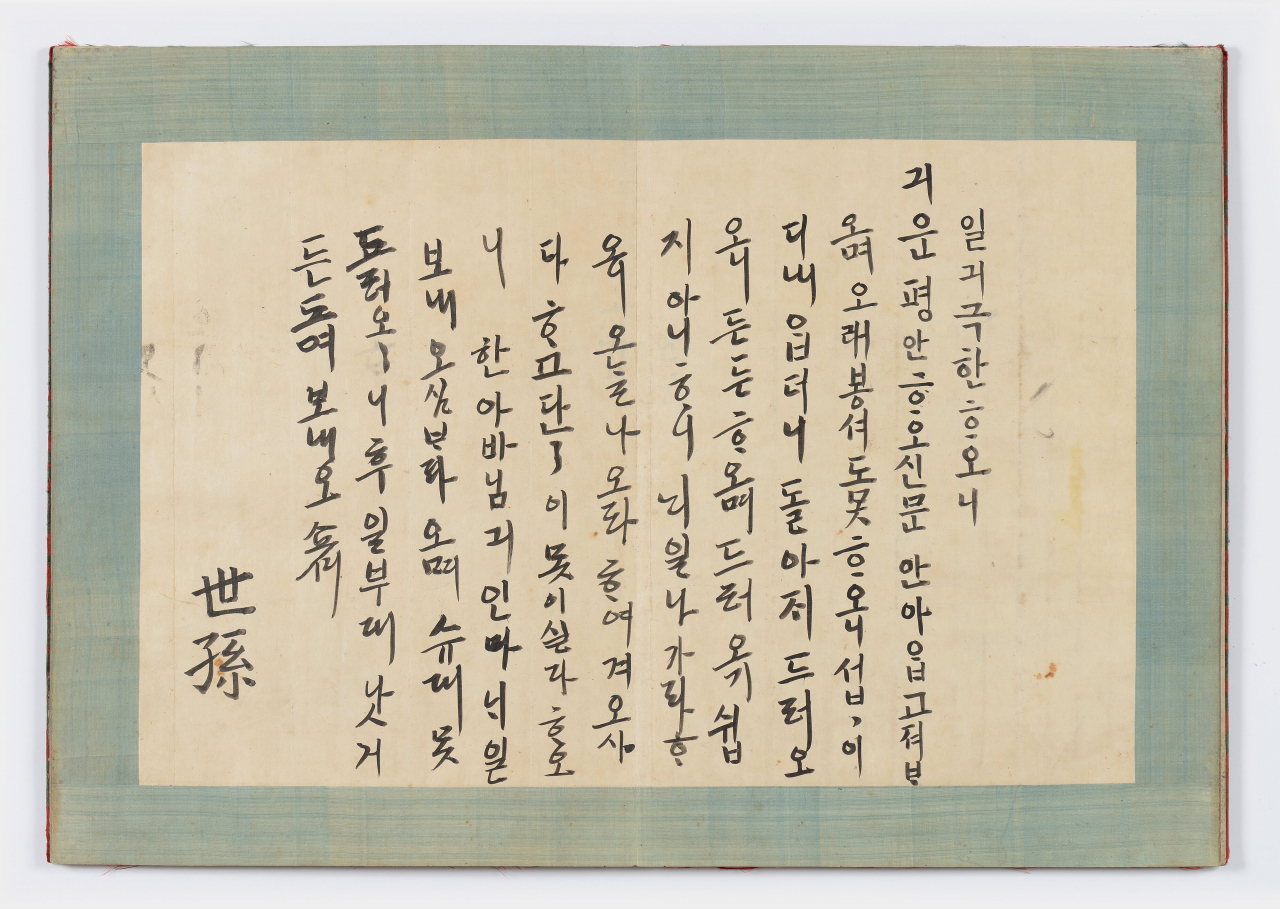 일긔극한ᄒᆞ오니
긔운평안ᄒᆞ오신문안아ᄋᆞᆸ고져ᄇᆞ
오며오래봉셔도못ᄒᆞ오니섭〃이
디내ᄋᆞᆸ더니돌아지드러오
오니든든ᄒᆞ오며드러오기쉽
지아니ᄒᆞ니ᄂᆡ일나가라ᄒᆞ
오니오ᄂᆞᆯ나오라ᄒᆞ여겨오샤
다ᄒᆞ고단〃이못이실다ᄒᆞ오
니 한아바님긔인마ᄂᆡ일
보내오심ᄇᆞ라오며슈대못
ᄃᆞ려오〃니후일부대낫거
든ᄃᆞ려보내오쇼셔
世孫